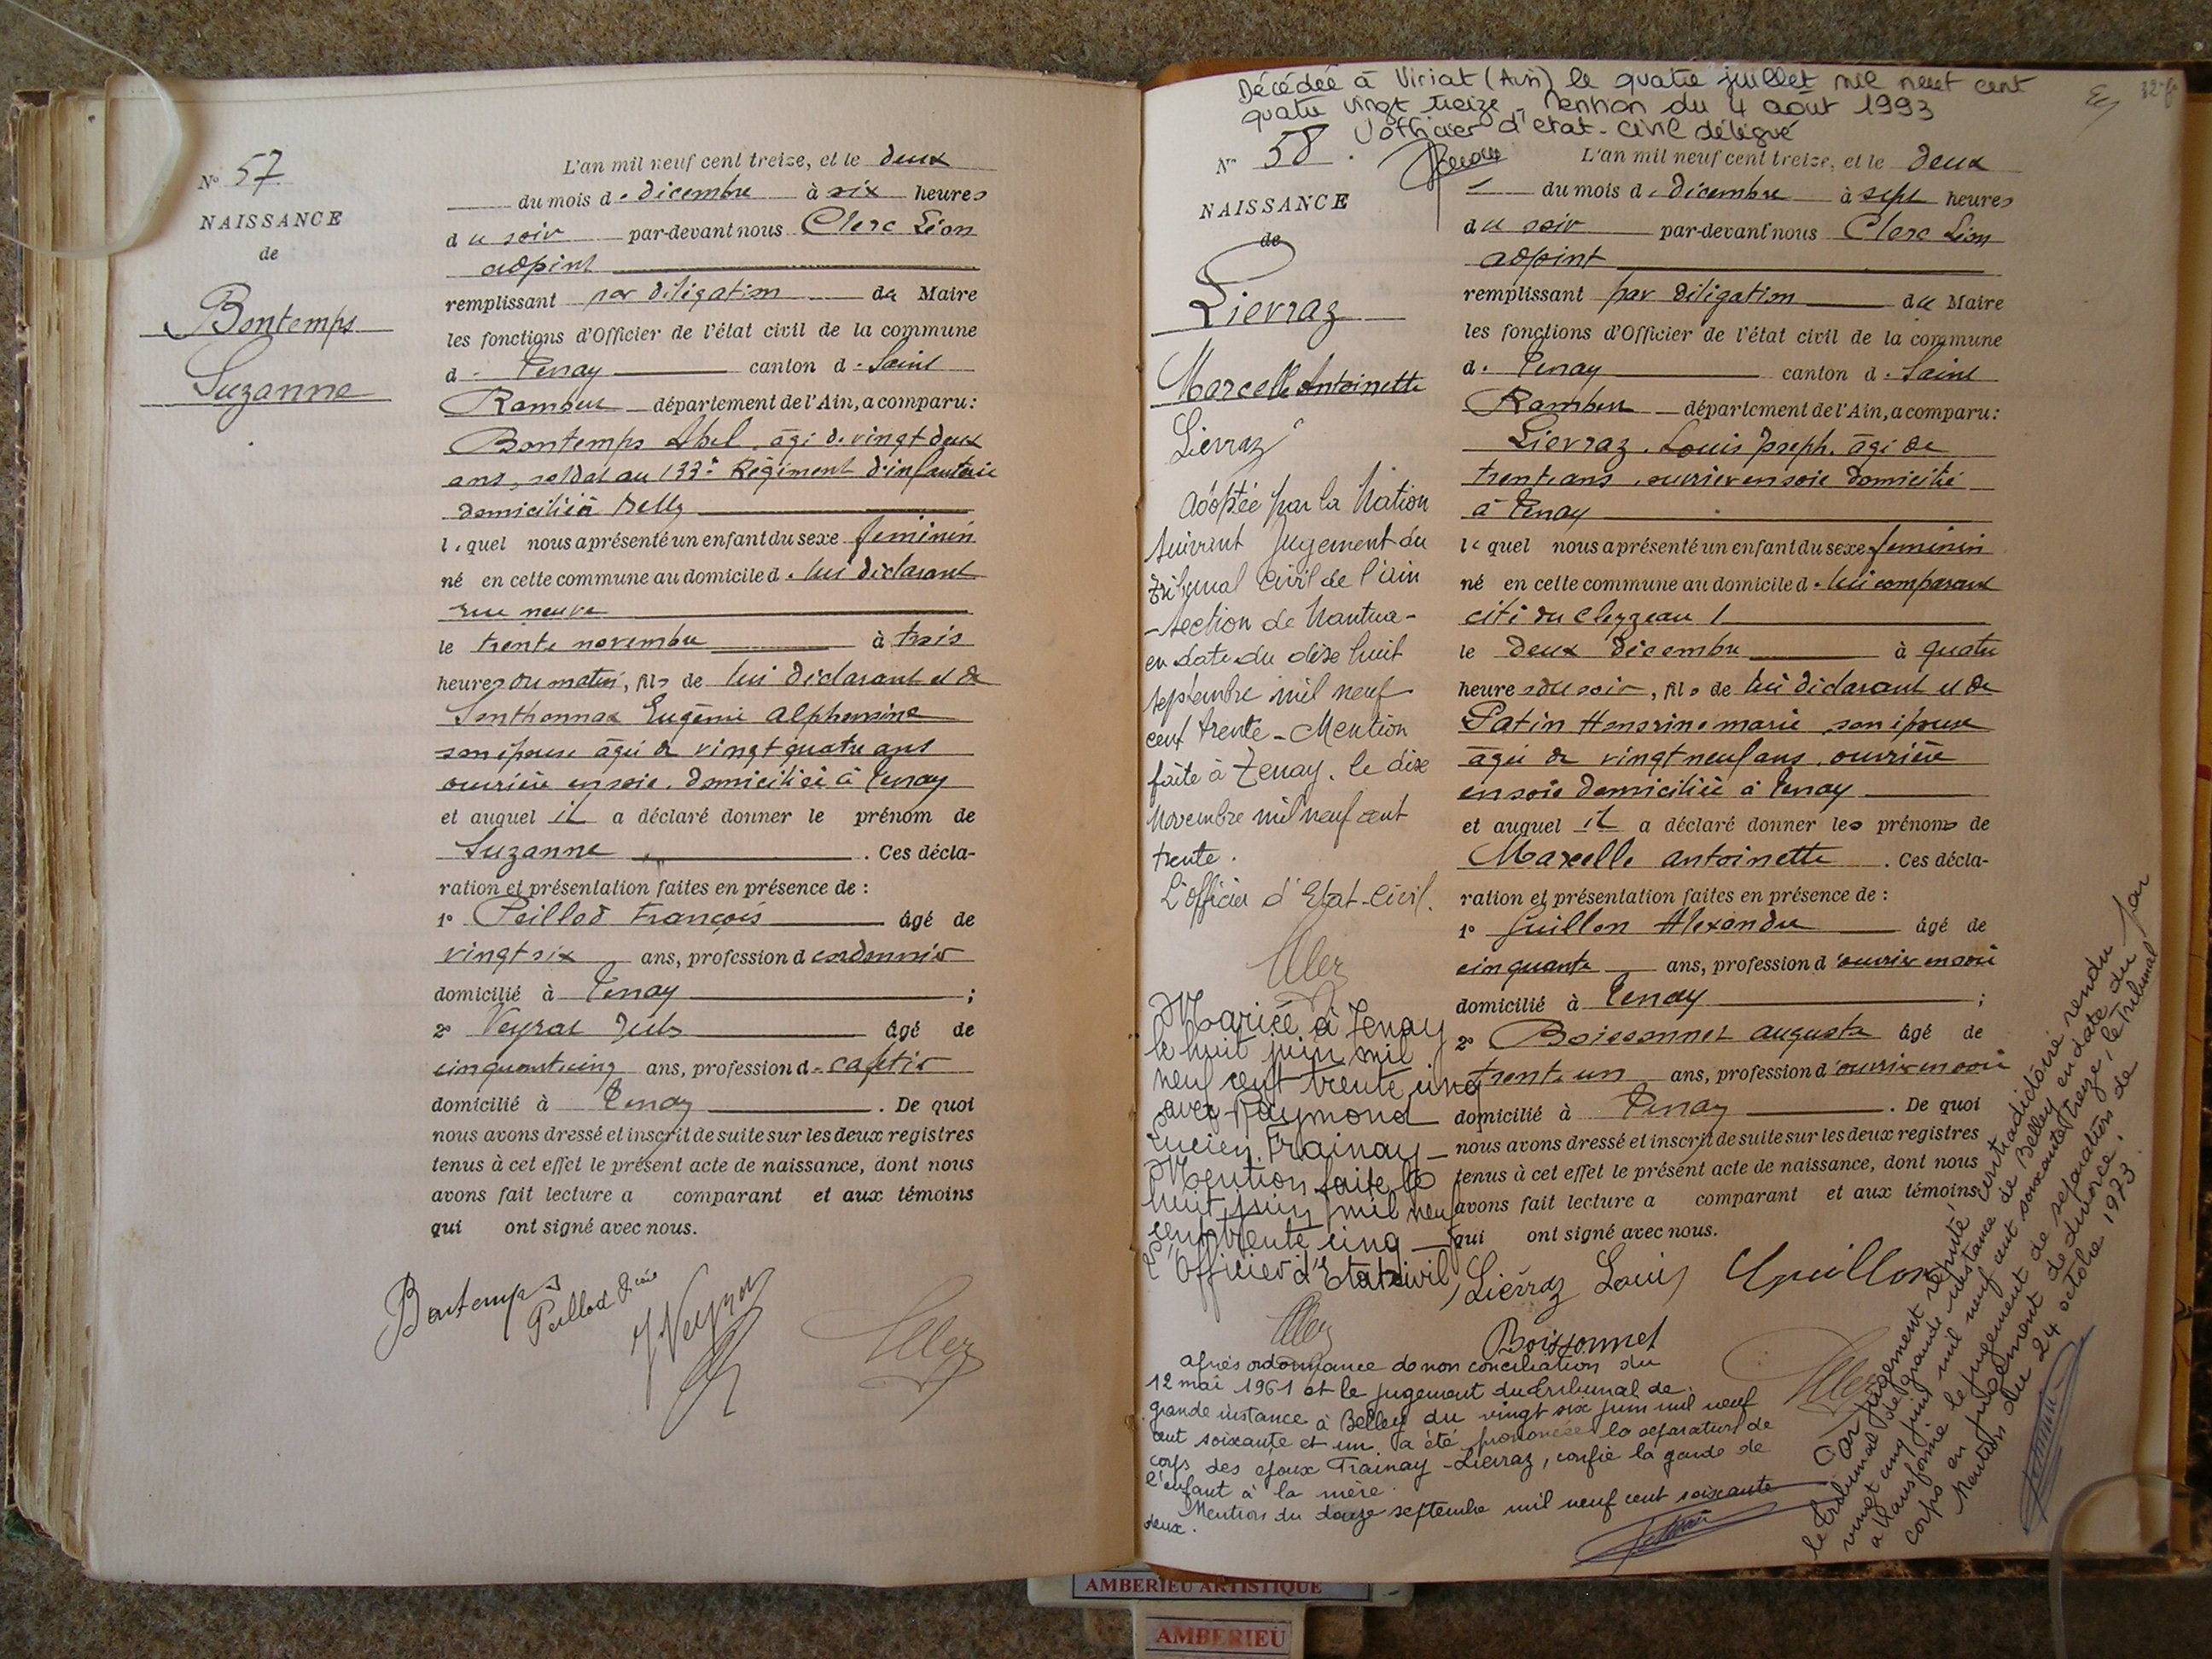 N° 57
NAISSANCE
de
Bontemps
Suzanne
L'an mil neuf cent treize, et le deux
du mois d. décembre à six heures
du soir par-devant nous Clerc Léon
adjoint
remplissant par délégation du Maire
les fonctions d'Officier de l'état civil de la commune
d. Tenay canton d. Saint
Rambert département de l'Ain, a comparu :
Bontemps Abel, âgé de vingt deux
ans, soldat au 133e Régiment d'infanterie
domicilié à Belley
lequel nous a présenté un enfant du sexe féminin
né en cette commune au domicile d. lui déclarant
rue neuve
le trente novembre à trois
heures du matin, fils de lui déclarant et de
Eugénie Alphonsine
son épouse âgée de vingt quatre ans
ouvrière en soie, domiciliée à Tenay
et auquel il a déclaré donner le prénom de
Suzanne . Ces décla-
ration et présentation faites en présence de :
1° Peillod François âgé de
vingt six ans, profession d cordonnier
domicilié à Tenay ;
2° Veyrat Jules âgé de
cinquante cinq ans, profession d. cafetier
domicilié à Tenay . De quoi
nous avons dressé et inscrit de suite sur les deux registres
tenus à cet effet le présent acte de naissance, dont nous
avons fait lecture a comparant et aux témoins
qui ont signé avec nous.
Bontemps
Peillod
J Veyrat
Décédée à Viriat (Ain) le quatre juillet mil neuf cent
quatre vingt treize - Mention du 4 août 1993
L'officier d'état-civil délégué
N° 58.
NAISSANCE
de
Lievraz
Marcelle Antoinette
Lierraz
Adoptée par la Nation
suivant jugement du
tribunal civil de l'Ain
- section de Nantua -
en date du dix huit
septembre mil neuf
cent trente - Mention
faite à Tenay, le dix
Novembre mil neuf cent
trente.
L'Officier d'Etat-Civil.
Mariée à Tenay
le huit juin mil
neuf cent trente cinq
avec Raymond
Lucien Trainay -
Mention faite le
huit juin mil neuf
cent trente cinq -
L'Officier d'Etat civil,
L'an mil neuf cent treize, et le deux
du mois d. décembre à sept heures
du soir par-devant nous Clerc Léon
adjoint
remplissant par délégation du Maire
les fonctions d'Officier de l'état civil de la commune
d. Tenay canton d. Saint
Rambert département de l'Ain, a comparu :
Lierraz Louis Joseph, âgé de
trente ans, ouvrier en soie domicilié
à Tenay
lequel nous a présenté un enfant du sexe féminin
né en cette commune au domicile d. lui comparant
cité du Cleyzeau 1
le deux décembre à quatre
heures du soir, fils de lui déclarant et de
Patin marie son épouse
âgée de vingt neuf ans, ouvrière
en soie domiciliée à Tenay
et auquel il a déclaré donner les prénoms de
Marcelle antoinette . Ces décla-
ration et présentation faites en présence de :
1° Guillon Alexandre âgé de
cinquante ans, profession d'ouvrier en soie
domicilié à Tenay ;
2° Boissonnet auguste âgé de
trente un ans, profession d'ouvrier en soie
domicilié à Tenay . De quoi
nous avons dressé et inscrit de suite sur les deux registres
tenus à cet effet le présent acte de naissance, dont nous
avons fait lecture a comparant et aux témoins
qui ont signé avec nous.
Lierraz Louis Guillon
Boissonnet
après ordonnance de non conciliation du
12 mai 1961 et le jugement du tribunal de
grande instance à Belley du vingt six juin mil neuf
cent soixante et un, a été prononcée la séparation de
corps des époux Trainay - Lierraz, confie la garde de
l'enfant à la mère.
Mention du douze septembre mil neuf cent soixante
deux.
Par jugement réputé contradictoire rendu par
le tribunal de grande instance de Belley en date du
vingt cinq juin mil neuf cent soixante treize, le tribunal
a transformé le jugement de séparation de
corps en jugement de divorce.
Mention du 24 octobre 1973.
AMBERIEU ARTISTIQUE
AMBERIEU